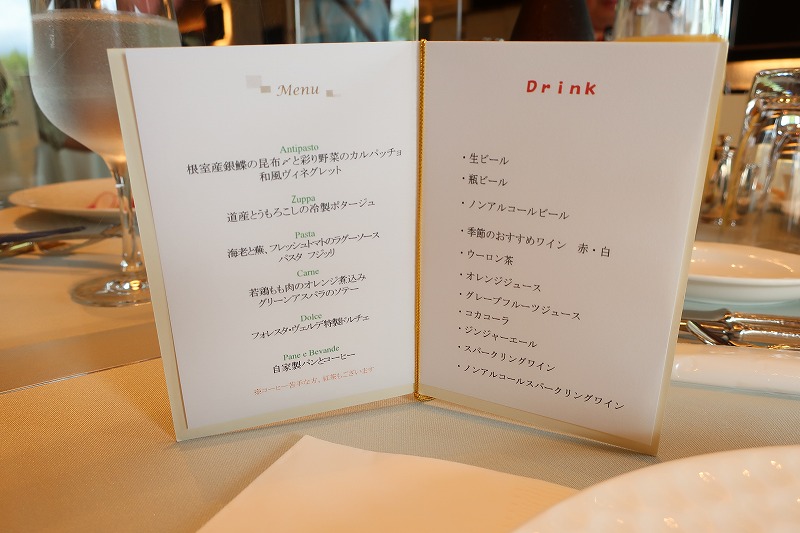 Menu
Antipasto
根室産銀鰈の昆布〆と彩り野菜のカルパッチョ
和風ヴィネグレット
Zuppa
道産とうもろこしの冷製ポタージュ
Pasta
海老と蕪、フレッシュトマトのラグーソース
パスタ フジッリ
Carne
若鶏もも肉のオレンジ煮込み
グリーンアスパラのソテー
Dolce
フォレスタ・ヴェルデ特製ドルチェ
Pane e Bevande
自家製パンとコーヒー
※コーヒー苦手な方、紅茶もございます
Drink
・生ビール
・瓶ビール
・ノンアルコールビール
・季節のおすすめワイン 赤・白
・ウーロン茶
・オレンジジュース
・グレープフルーツジュース
・コカコーラ
・ジンジャーエール
・スパークリングワイン
・ノンアルコールスパークリングワイン